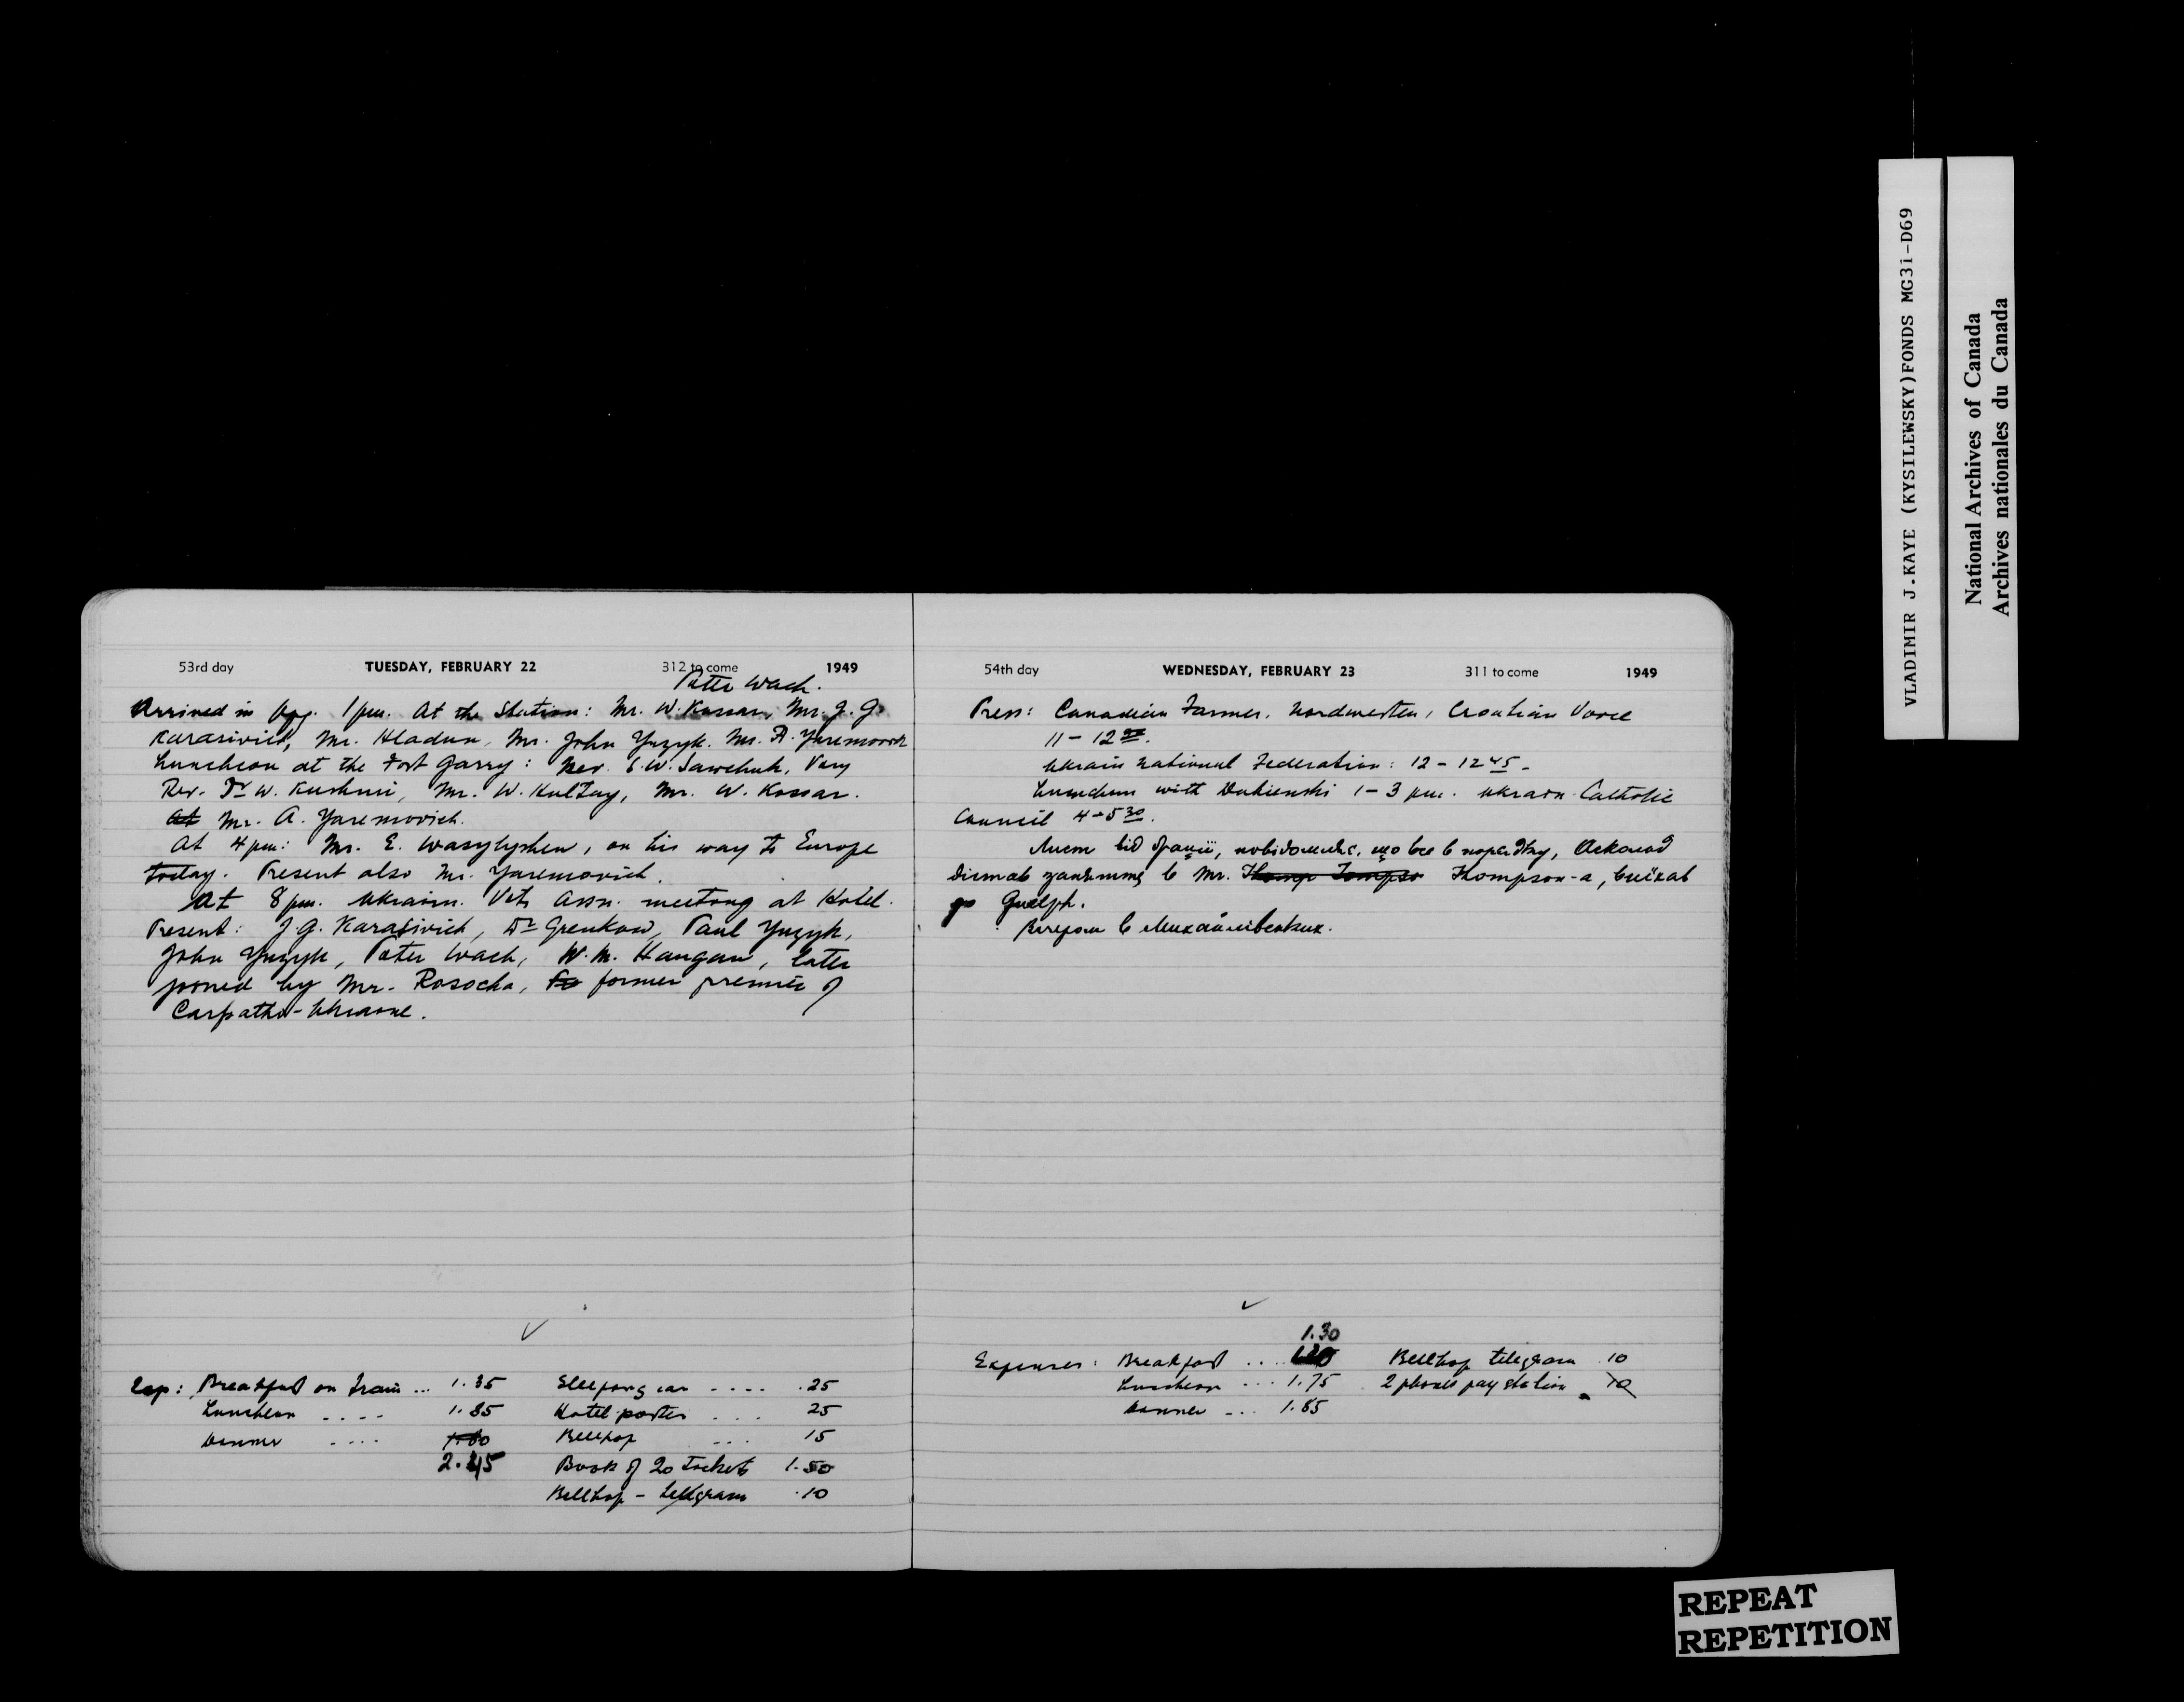 53rd day TUESDAY, FEBRUARY 22 312 to come 1949
Peter Wach.
Arrived in Wpg. 1 pm. At the Station: Mr. W. Kossar, Mr. J. G.
Karasivich, Mr. Hladun, Mr. John Yuzyk. Mr. A. Yaremovich
Luncheon at the Fort Garry: Rev. S. W. Sawchuk, Very
Rev. Dr W. Kushnir, Mr. W. Kossar.
At Mr. A. Yaremovich.
At 4 pm: Mr. E. Wasylyshen, on his way to Europe
today. Present also Mr. Yaremovich.
At 8 pm. Ukrain. Vets Assn. meeting at Hotel.
Present: J. G. Karasivich, Dr Grenkow, Paul Yuzyk,
John Yuzyk, Peter Wach, W. M. Hangan, later
joined by Mr. Rosocha, Fo former premier of
Carpatho-Ukraine.
Exp: Breakfast on train ... 1.35 Sleeping car .... .25
Luncheon .... 1.85 Hotel porter ... 25
Dinner .... Bellhop ... 15
2.45 Book of 20 tickets 1.50
Bellhop - telegram .10
54th day WEDNESDAY, FEBRUARY 23 311 to come 1949
Press: Canadian Farmer, Nordwesten, Croatian Voice
11 - 12
Ukrain National Federation: 12 - 12 45 -
Luncheon with Dubienski 1 - 3 pm. Ukrain Catholic
Council 4 - 5 30.
Лист від Грації, повідомляє, що все в порядку, Асколод
дістав заняття в Mr. Thomp Tompso Thompson-а, виїхав
до Guelph.
Вечером в Михайлівських.
1.30
Expenses: Breakfast ... Bellhop telegram .10
Luncheon ... 1.75 2 phones pay station 10
Dinner ... 1.85
VLADIMIR J.KAYE (KYSILEWSKY)FONDS MG31-D69
National Archives of Canada
Archives nationales du Canada
REPEAT
REPETITION